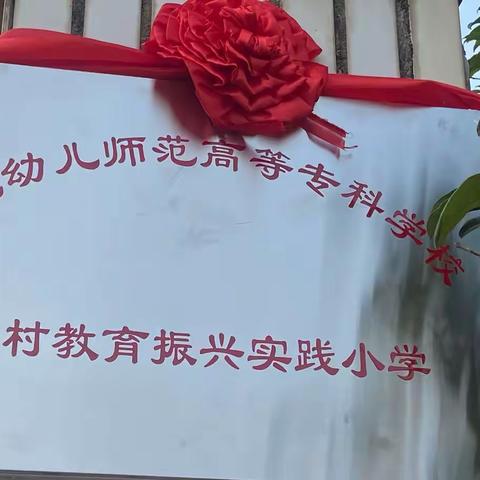 幼儿师范高等专科学校
村教育振兴实践小学